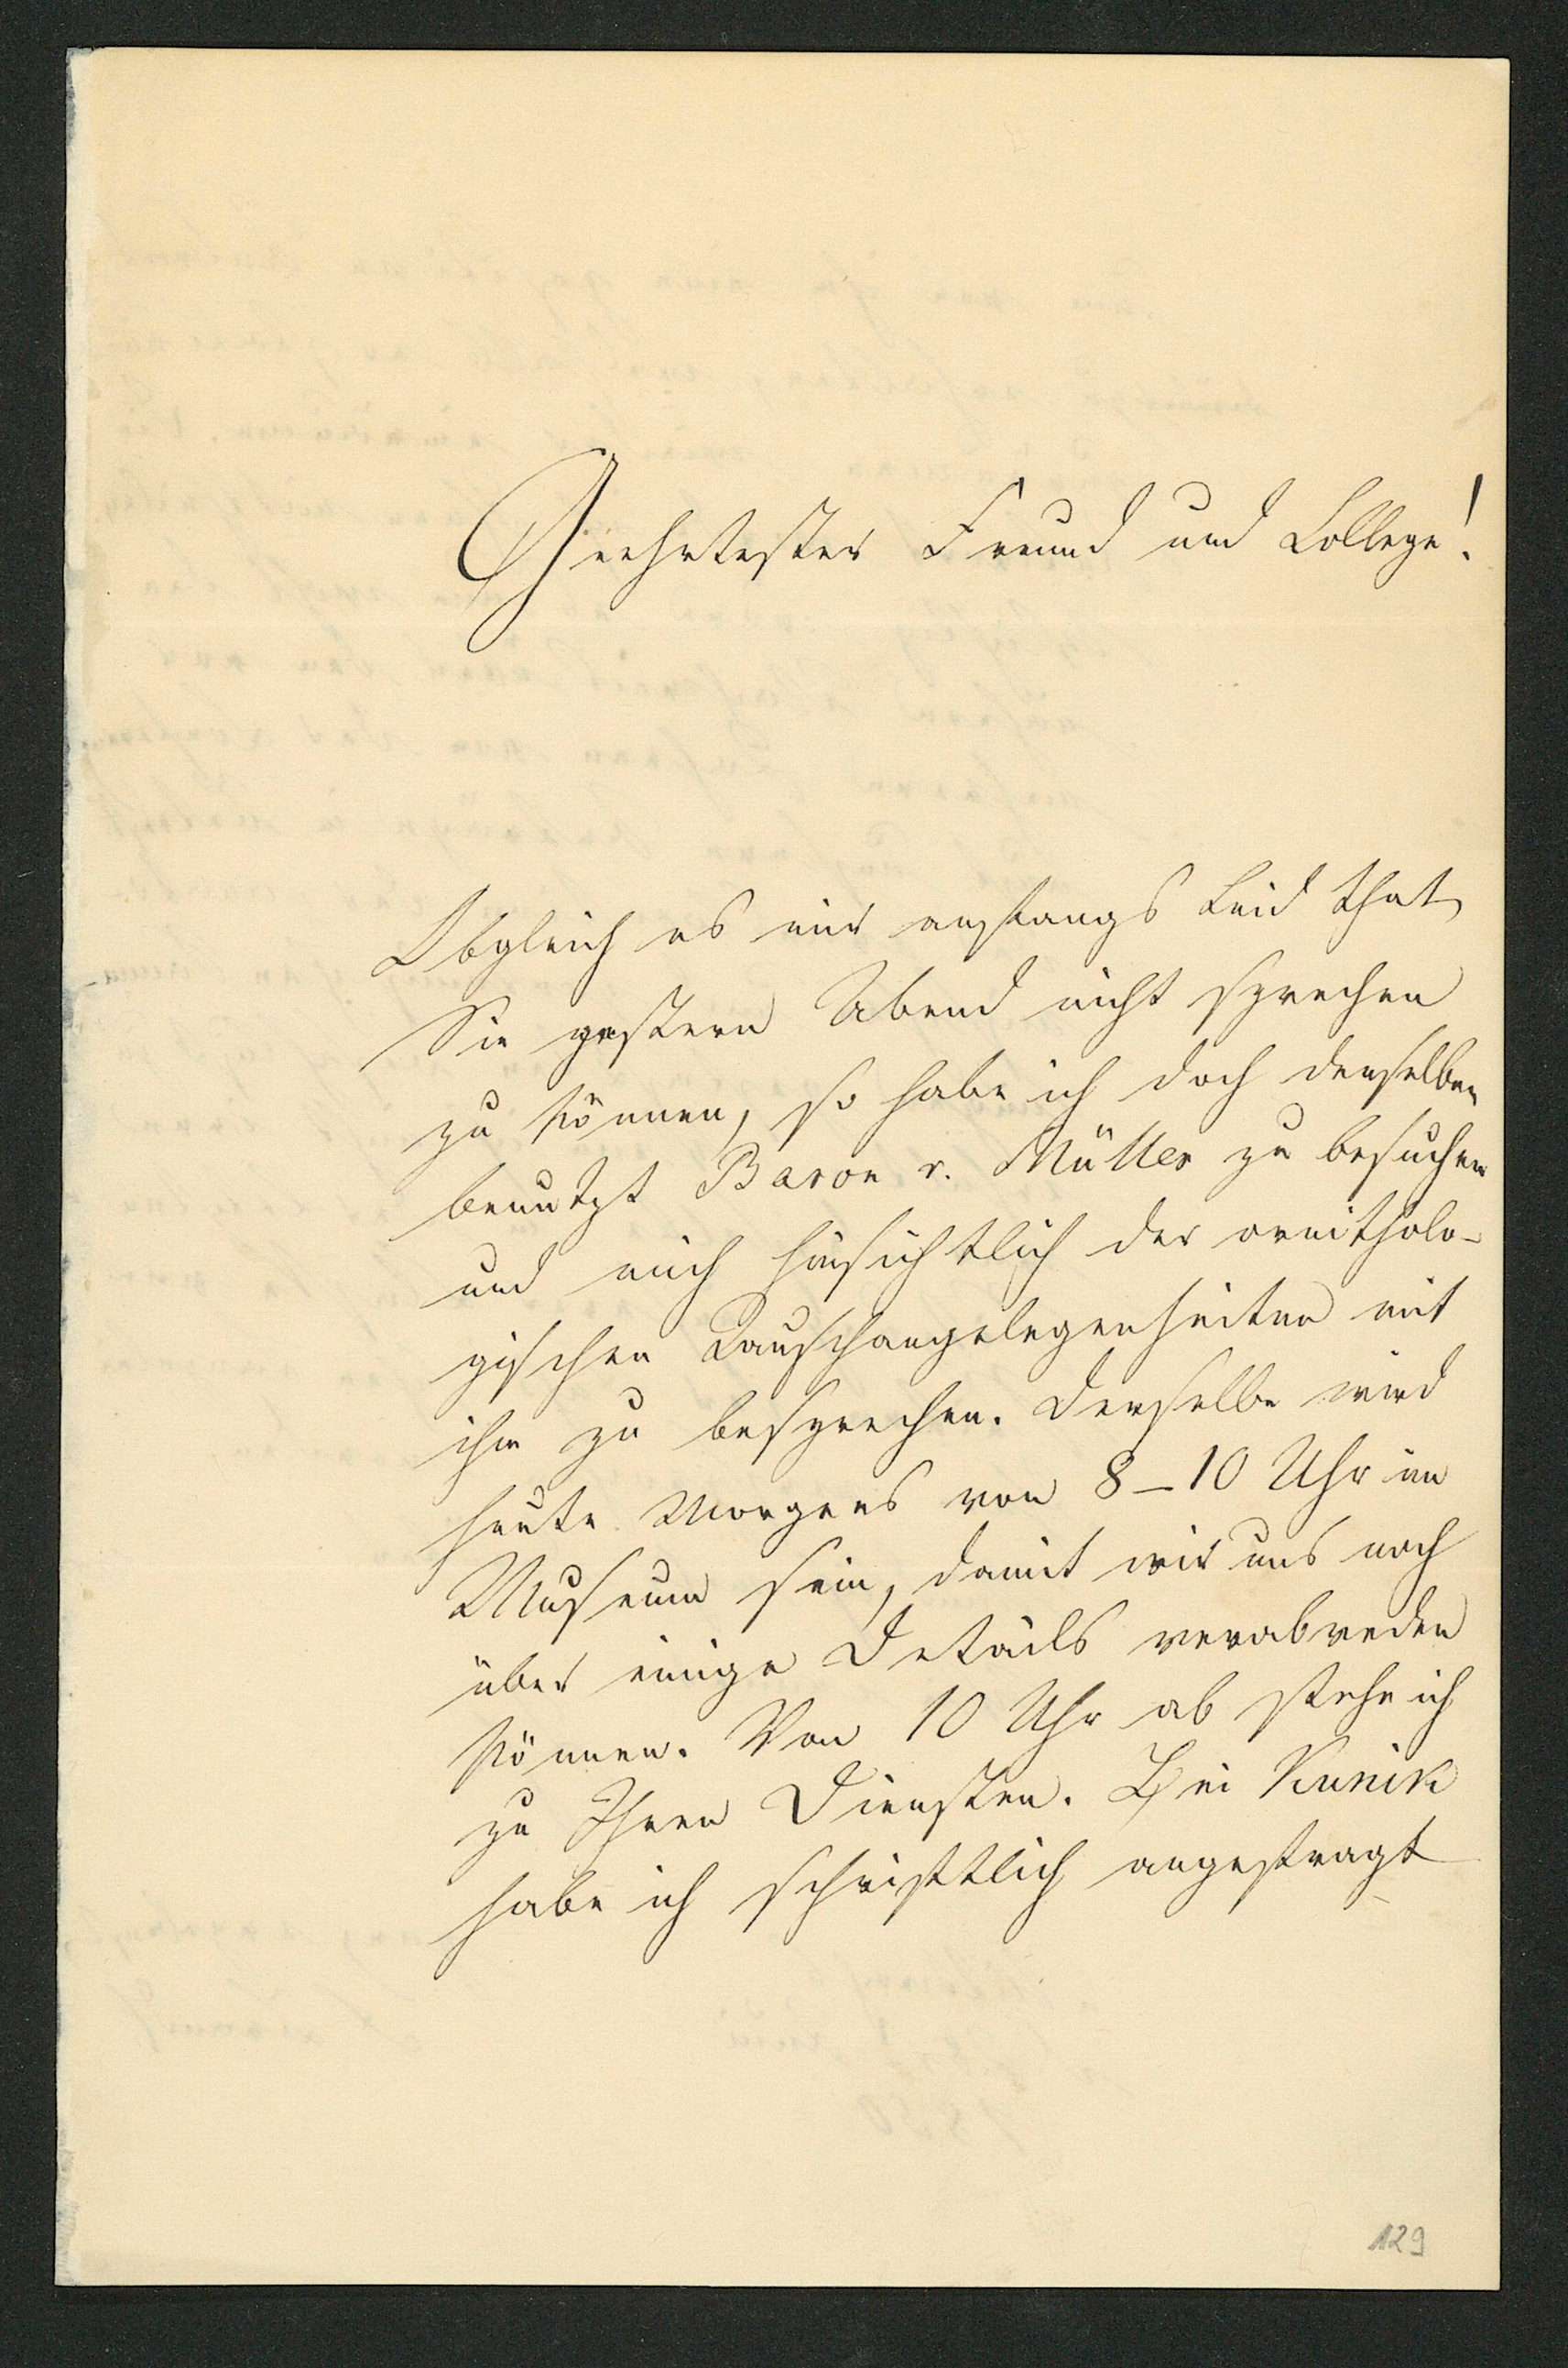 Geehrtester Freund und College!
Obgleich es mir anfangs Leid that
Sie gestern Abend nicht sprechen
zu können, so habe ich doch denselben
benutzt Baron v. Müller zu besuchen
und mich hinsichtlich der ornitholo-
gischen Tauschangelegenheiten mit
ihm zu besprechen. Derselbe wird
heute Morgens von 8-10 Uhr im
Museum sein, damit wir uns noch
über einige Details verabreden
können. Von 10 Uhr ab stehe ich
zu Ihren Diensten. Bei Kunik
habe ich schriftlich angefragt
129